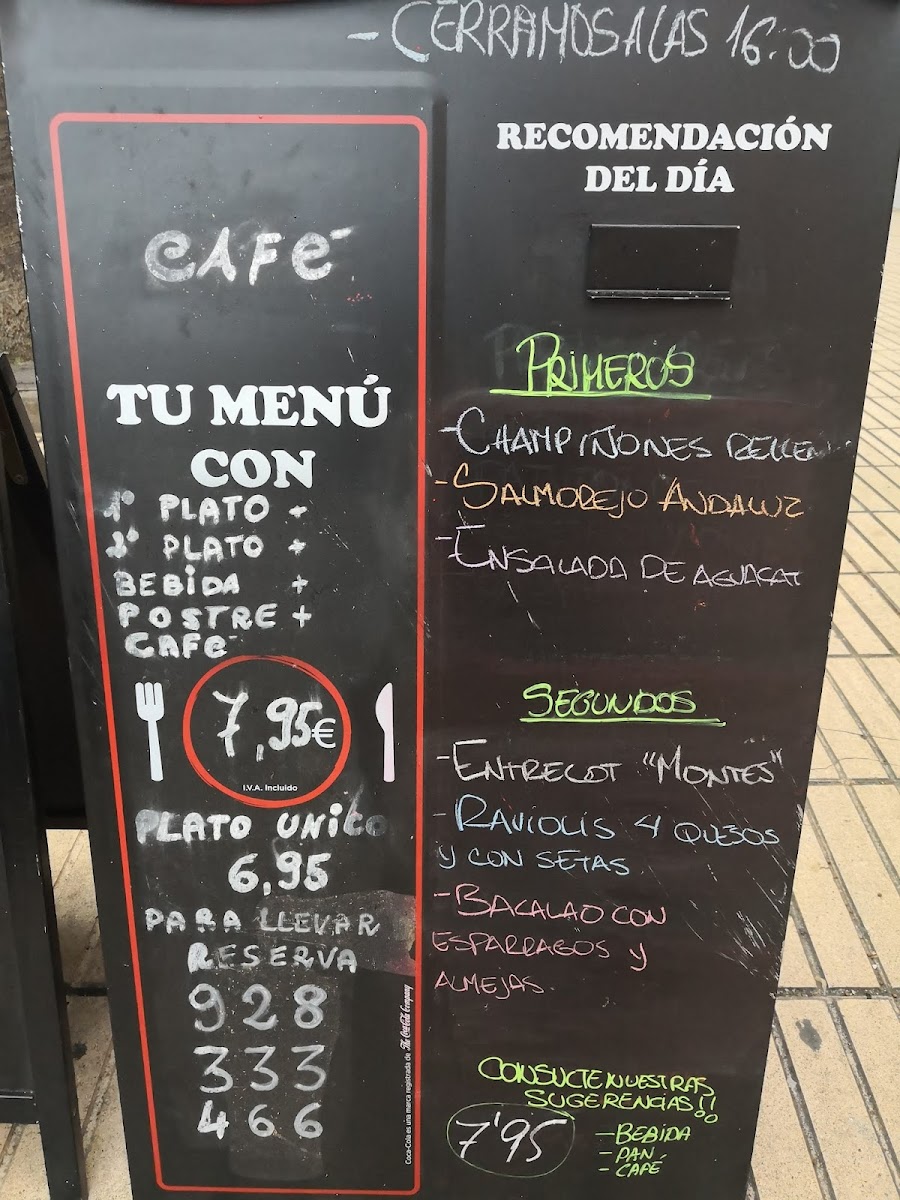 - CERRAMOS A LAS 16:00
CAFÉ
TU MENÚ
CON
1º PLATO +
2º PLATO +
BEBIDA +
POSTRE +
CAFÉ
7,95€
I.V.A. Incluido
PLATO UNICO
6,95
PARA LLEVAR
RESERVA
928
333
466
Coca-Cola es una marca registrada de The Coca-Cola Company
RECOMENDACIÓN
DEL DÍA
PRIMEROS
- CHAMPIÑONES RELLEN
- SALMOREJO ANDALUZ
- ENSALADA DE AGUACAT
SEGUNDOS
- ENTRECOT "MONTES"
- RAVIOLIS 4 QUESOS
Y CON SETAS
- BACALAO CON
ESPARRAGOS Y
ALMEJAS.
CONSULTE NUESTRAS
SUGERENCIAS!!
7'95
- BEBIDA
- PAN
- CAFÉ